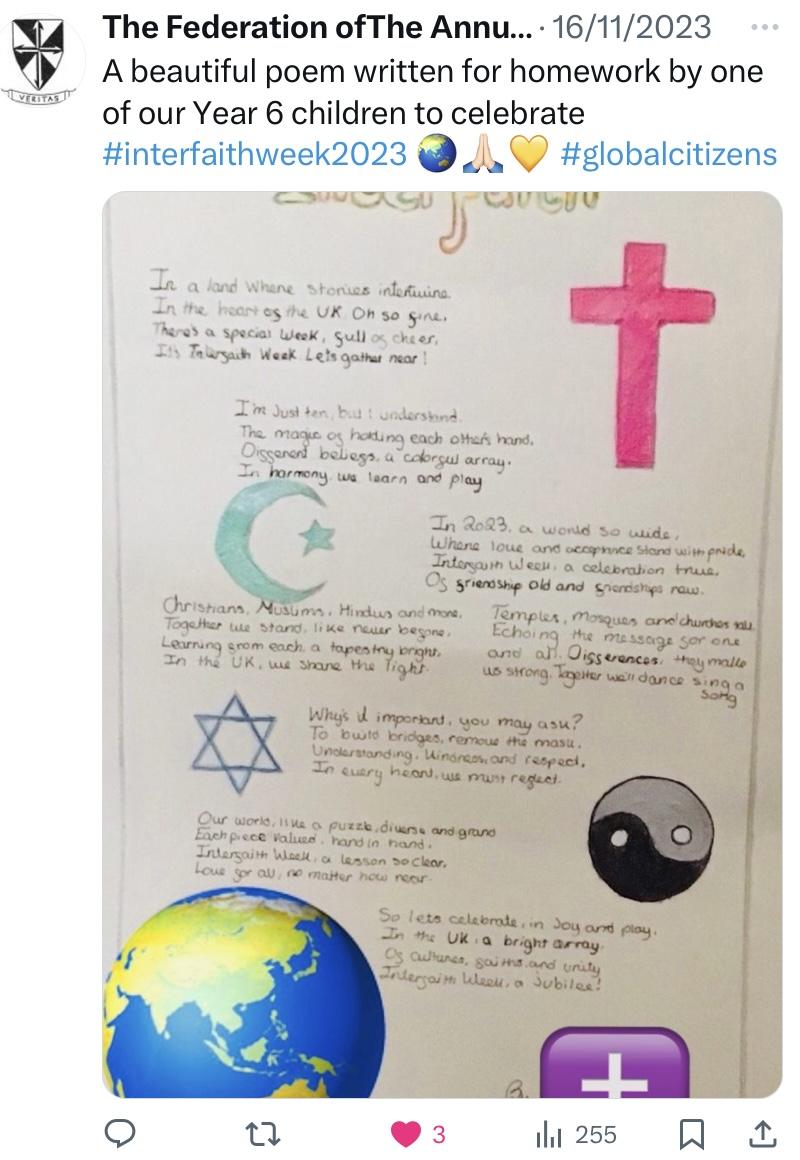 The Federation ofThe Annu... · 16/11/2023
VERITAS
A beautiful poem written for homework by one
of our Year 6 children to celebrate
#interfaithweek2023 🌏🙏🏻💛 #globalcitizens
In a land where stories intertwine.
In the heart of the UK. Oh so fine.
There's a special week, full of cheer,
It's Interfaith Week. Lets gather near!
I'm Just ten, but I understand.
The magic of holding each other's hand.
Different beliefs, a colorful array.
In harmony, we learn and play
In 2023, a world so wide,
Where love and acceptance stand with pride,
Interfaith Week, a celebration true,
Of friendship old and friendships new.
Christians, Muslims, Hindus and more,
Together we stand, like never before,
Learning from each, a tapestry bright,
In the UK, we share the light.
Temples, Mosques and churches tall
Echoing the message for one
and all. Differences, they make
us strong. Together we'll dance sing a
song
Why's it important, you may ask?
To build bridges, remove the mask.
Understanding, kindness, and respect,
In every heart, we must reflect.
Our world, like a puzzle, diverse and grand
Each piece valued, hand in hand.
Interfaith Week, a lesson so clear,
Love for all, no matter how near.
So lets celebrate, in Joy and play,
In the UK, a bright array.
Of cultures, faiths, and unity
Interfaith Week, a Jubilee!
3
255